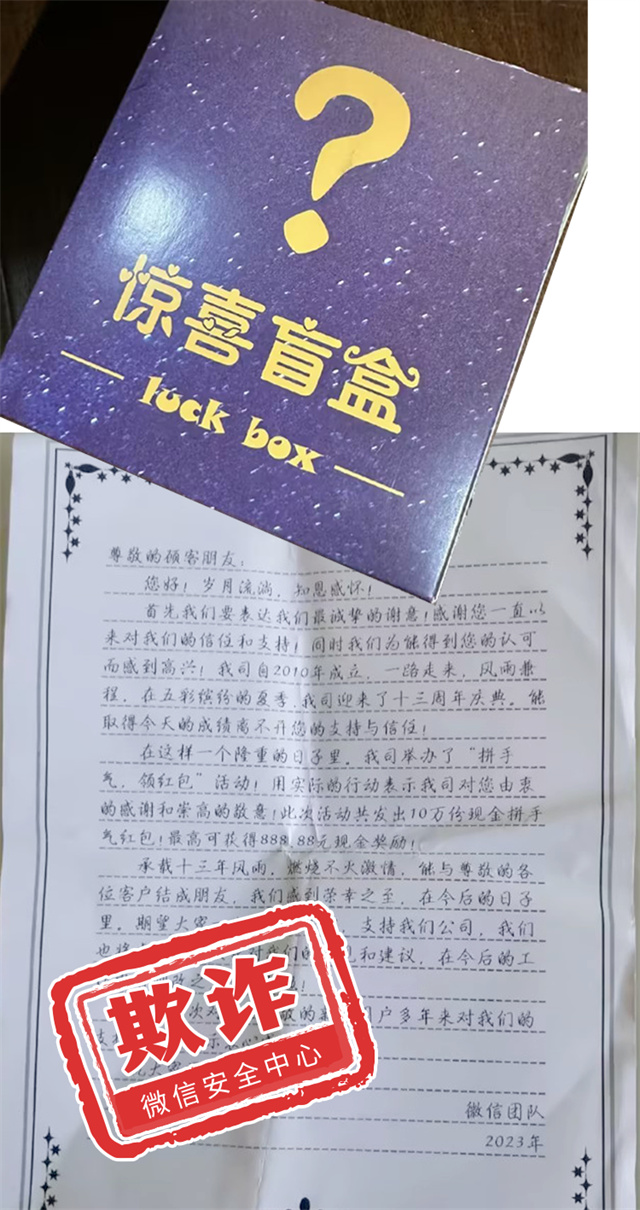 ?
惊喜盲盒
luck box
尊敬的顾客朋友：
您好！岁月流淌，知恩感怀！
首先我们要表达我们最诚挚的谢意！感谢您一直以
来对我们的信任和支持！同时我们为能得到您的认可
而感到高兴！我司自2010年成立，一路走来，风雨兼
程，在五彩缤纷的夏季，我司迎来了十三周年庆典。能
取得今天的成绩离不开您的支持与信任！
在这样一个隆重的日子里，我司举办了“拼手
气，领红包”活动！用实际的行动表示我司对您由衷
的感谢和崇高的敬意！此次活动共发出10万份现金拼手
气红包！最高可获得888.88元现金奖励！
承载十三年风雨，燃烧不灭激情，能与尊敬的各
位客户结成朋友，我们感到荣幸之至，在今后的日子
里，期望大家 支持我们公司，我们
也将 对我们的 见和建议，在今后的工
次对 的 户多年来对我们的
欺诈
微信安全中心
微信团队
2023年